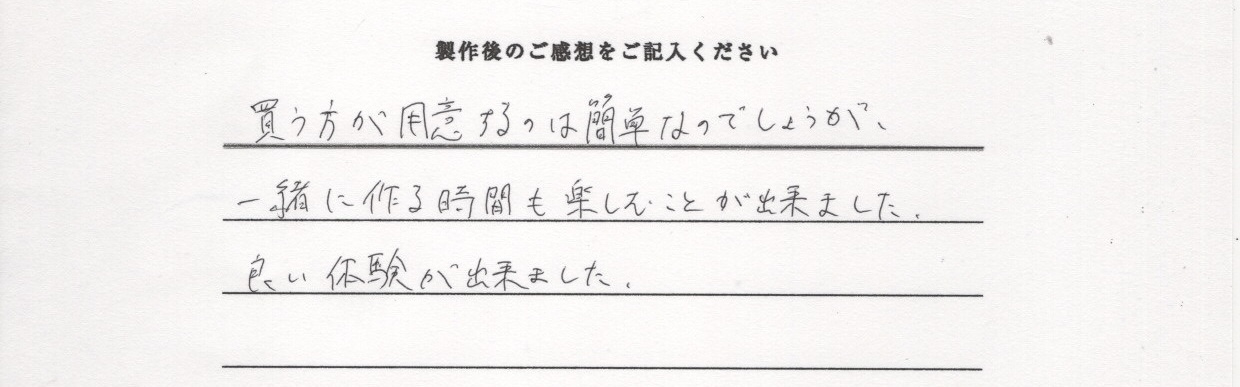 製作後のご感想をご記入ください
買う方が用意するのは簡単なのでしょうが、
一緒に作る時間も楽しむことが出来ました。
良い体験が出来ました。